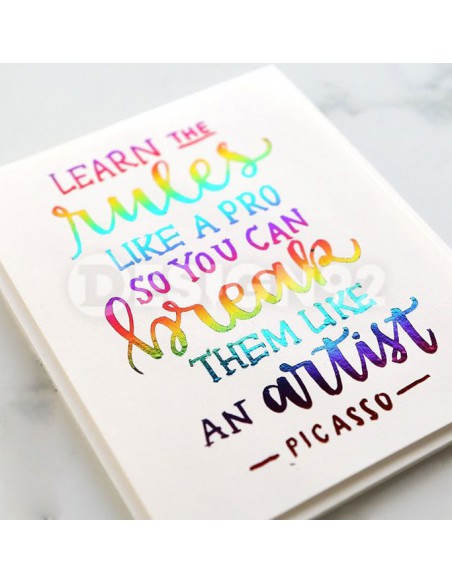 LEARN THE
rules
LIKE A PRO
SO YOU CAN
break
THEM LIKE
AN artist
— PICASSO —
DESIGN92